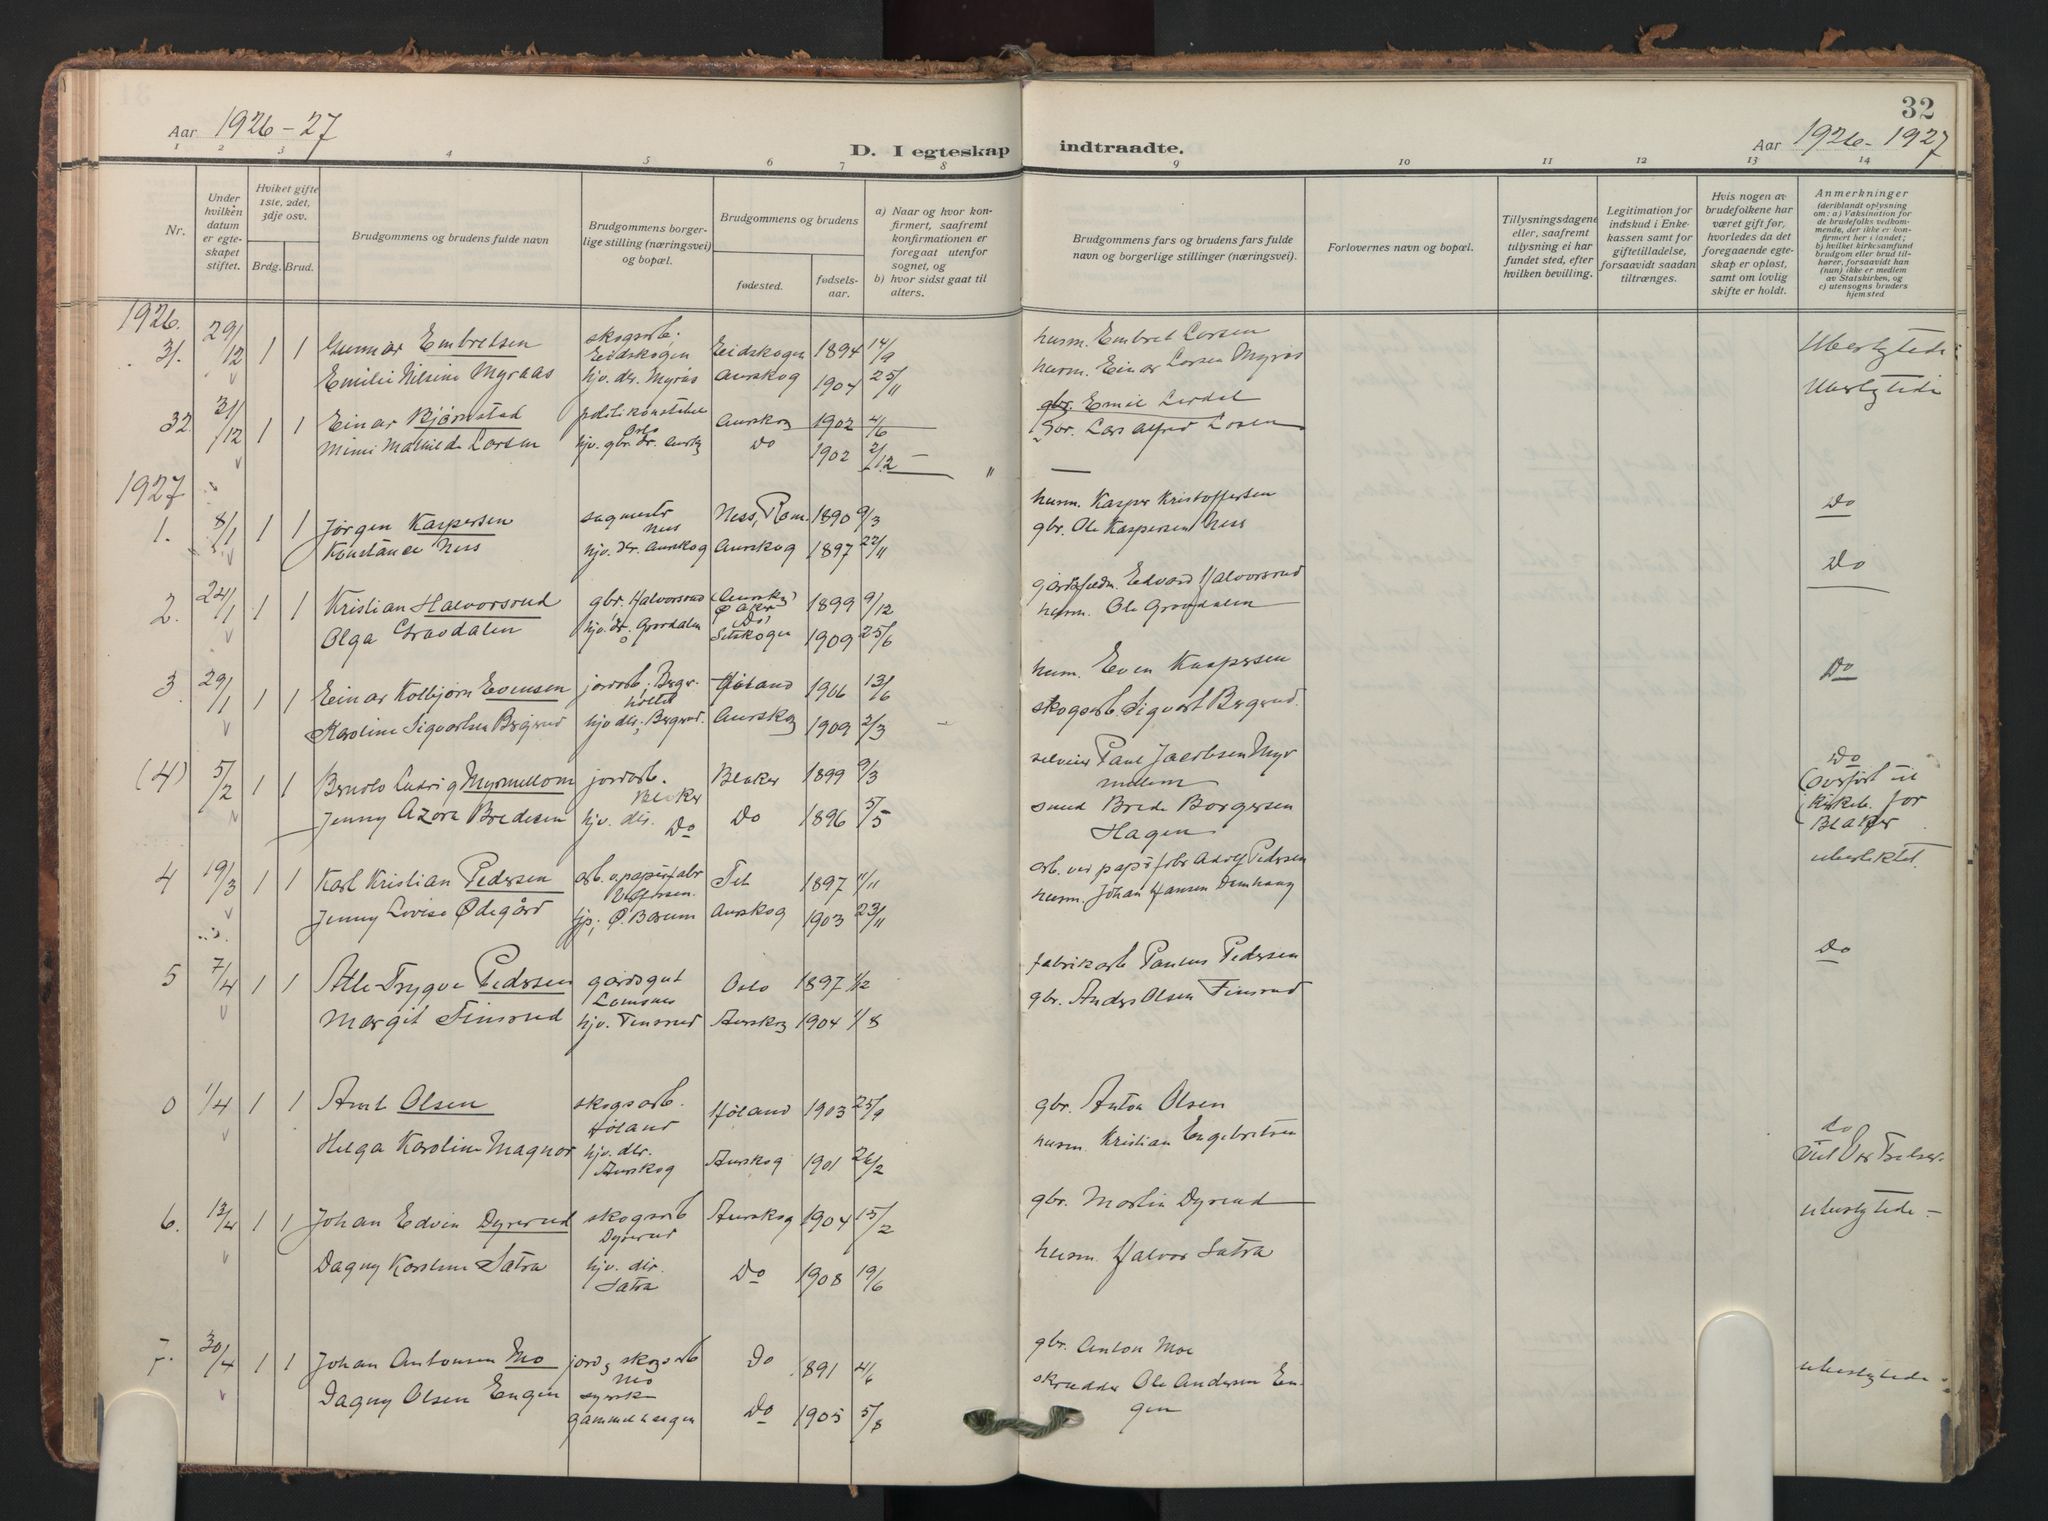 32
Aar 1926-27
D. I egteskap
indtraadte.
Aar 1926-1927
1 2 3 4 5 6 7 8 9 10 11 12 13 14
Nr.
Under hvilken datum er egteskapet stiftet.
Hvilket gifte 1ste, 2det, 3dje osv.
Brdg. Brud.
Brudgommens og brudens fulde navn
Brudgommens borgerlige stilling (næringsvei) og bopæl.
Brudgommens og brudens
fødested.
fødselsaar.
a) Naar og hvor konfirmert, saafremt konfirmationen er foregaat utenfor sognet, og
b) hvor sidst gaat til alters.
Brudgommens fars og brudens fars fulde navn og borgerlige stillinger (næringsvei).
Forlovernes navn og bopæl.
Tillysningsdagene eller, saafremt tillysning ei har fundet sted, efter hvilken bevilling.
Legitimation for indskud i Enkekassen samt for giftetilladelse, forsaavidt saadan tiltrænges.
Hvis nogen av brudefolkene har været gift før, hvorledes da det foregaaende egteskap er opløst, samt om lovlig skifte er holdt.
Anmerkninger (deriblandt oplysning om: a) Vaksination for de brudefolks vedkommende, der ikke er konfirmert her i landet; b) hvilket kirkesamfund brudgom eller brud tilhører, forsaavidt han (hun) ikke er medlem av Statskirken, og c) utensogns bruders hjemsted
1926.
31. 29/12 1 1 Gunnar Embretsen skogsarb. Eidskogen Eidskogen 1894 14/9 husm. Embret Larsen Uberygtede
Emilie Nilsine Myraas hjv. dtr. Myrås Aurskog 1904 25/11 husm. Einar Larsen Myrås Uberygtede
32 31/12 1 1 Einar Bjørnstad politikonstabel Oslo Aurskog 1902 4/6 gbr. Emil
Mimi Mathilde Larsen hjv. gbr. dr. Aursk. Do 1902 2/12 gbr. Lars Alfred Larsen
1927
1. 8/1 1 1 Jørgen Kaspersen sagmestr Ness Ness, Rom. 1890 9/3 husm. Kasper Kristoffersen Do
Konstance Ness hjv. dtr. Aurskog Aurskog 1897 22/11 gbr. Ole Kaspersen Ness
2. 24/1 1 1 Kristian Halvorsrud gbr. Halvorsrud (Aurskog) Blaker 1899 9/12 Edvard Halvorsrud Do
Olga Gravdalen hjv. dr. Gravdalen Setskogen 1909 25/6 husm. Ole Gravdalen
3 29/1 1 1 Einar Kolbjørn Evensen jordarb. Høland 1906 13/6 husm. Even Kaspersen Do
Karoline Sigvartsen Bergerud hjv. dtr., Bergerud. Aurskog 1909 2/3 skogsarb. Sigvart Bergerud.
(4) 5/2 1 1 Ludvig Myrmellom jordarb. Blaker Blaker 1899 9/3 Paul Jacobsen Myrmellem Do (Overført til kirkeb. for Blaker
Jenny Azora Bredesen hjv. dtr. Do Do 1896 5/5 smed Brede Borgersen Hagen
4 19/3 1 1 Karl Kristian Pedersen arb. v. papirfabr 1897 11/11 arb. ved papirfabr Adolf Pedersen
Jenny Lovise Ødegård Ø. Bærum Aurskog 1903 23/11 husm. Johan Hansen
5 7/4 1 1 Atle Trygve Pedersen gårdsgut Oslo 1897 1/2 fabrikarb Paulus Pedersen Do
Margit Finsrud hjv. Finsrud Aurskog 1904 1/8 gbr. Anders Olsen Finsrud
0 1/4 1 1 Arnt Olsen skogsarb. Høland Høland 1903 25/9 gbr. Anton Olsen do
Helga Karoline Magnor hjv. dtr. Aurskog Aurskog 1901 26/2 husm. Kristian Engebretsen
6. 13/4 1 1 Johan Edvin Dyrerud skogsarb Dyrerud Aurskog 1904 15/2 gbr. Martin Dyrerud uberygtede
Dagny Karoline Satra hjv. dtr. Satra Do 1908 19/6 husm. Halvor Satra
7. 30/4 1 1 Johan Antonsen Mo jord & skogsarb Mo Do 1891 4/6 gbr. Anton Moe uberygtede
Dagny Olsen Engen syerske gammelhaugen Do 1905 5/8 skrædder Ole Andersen Engen